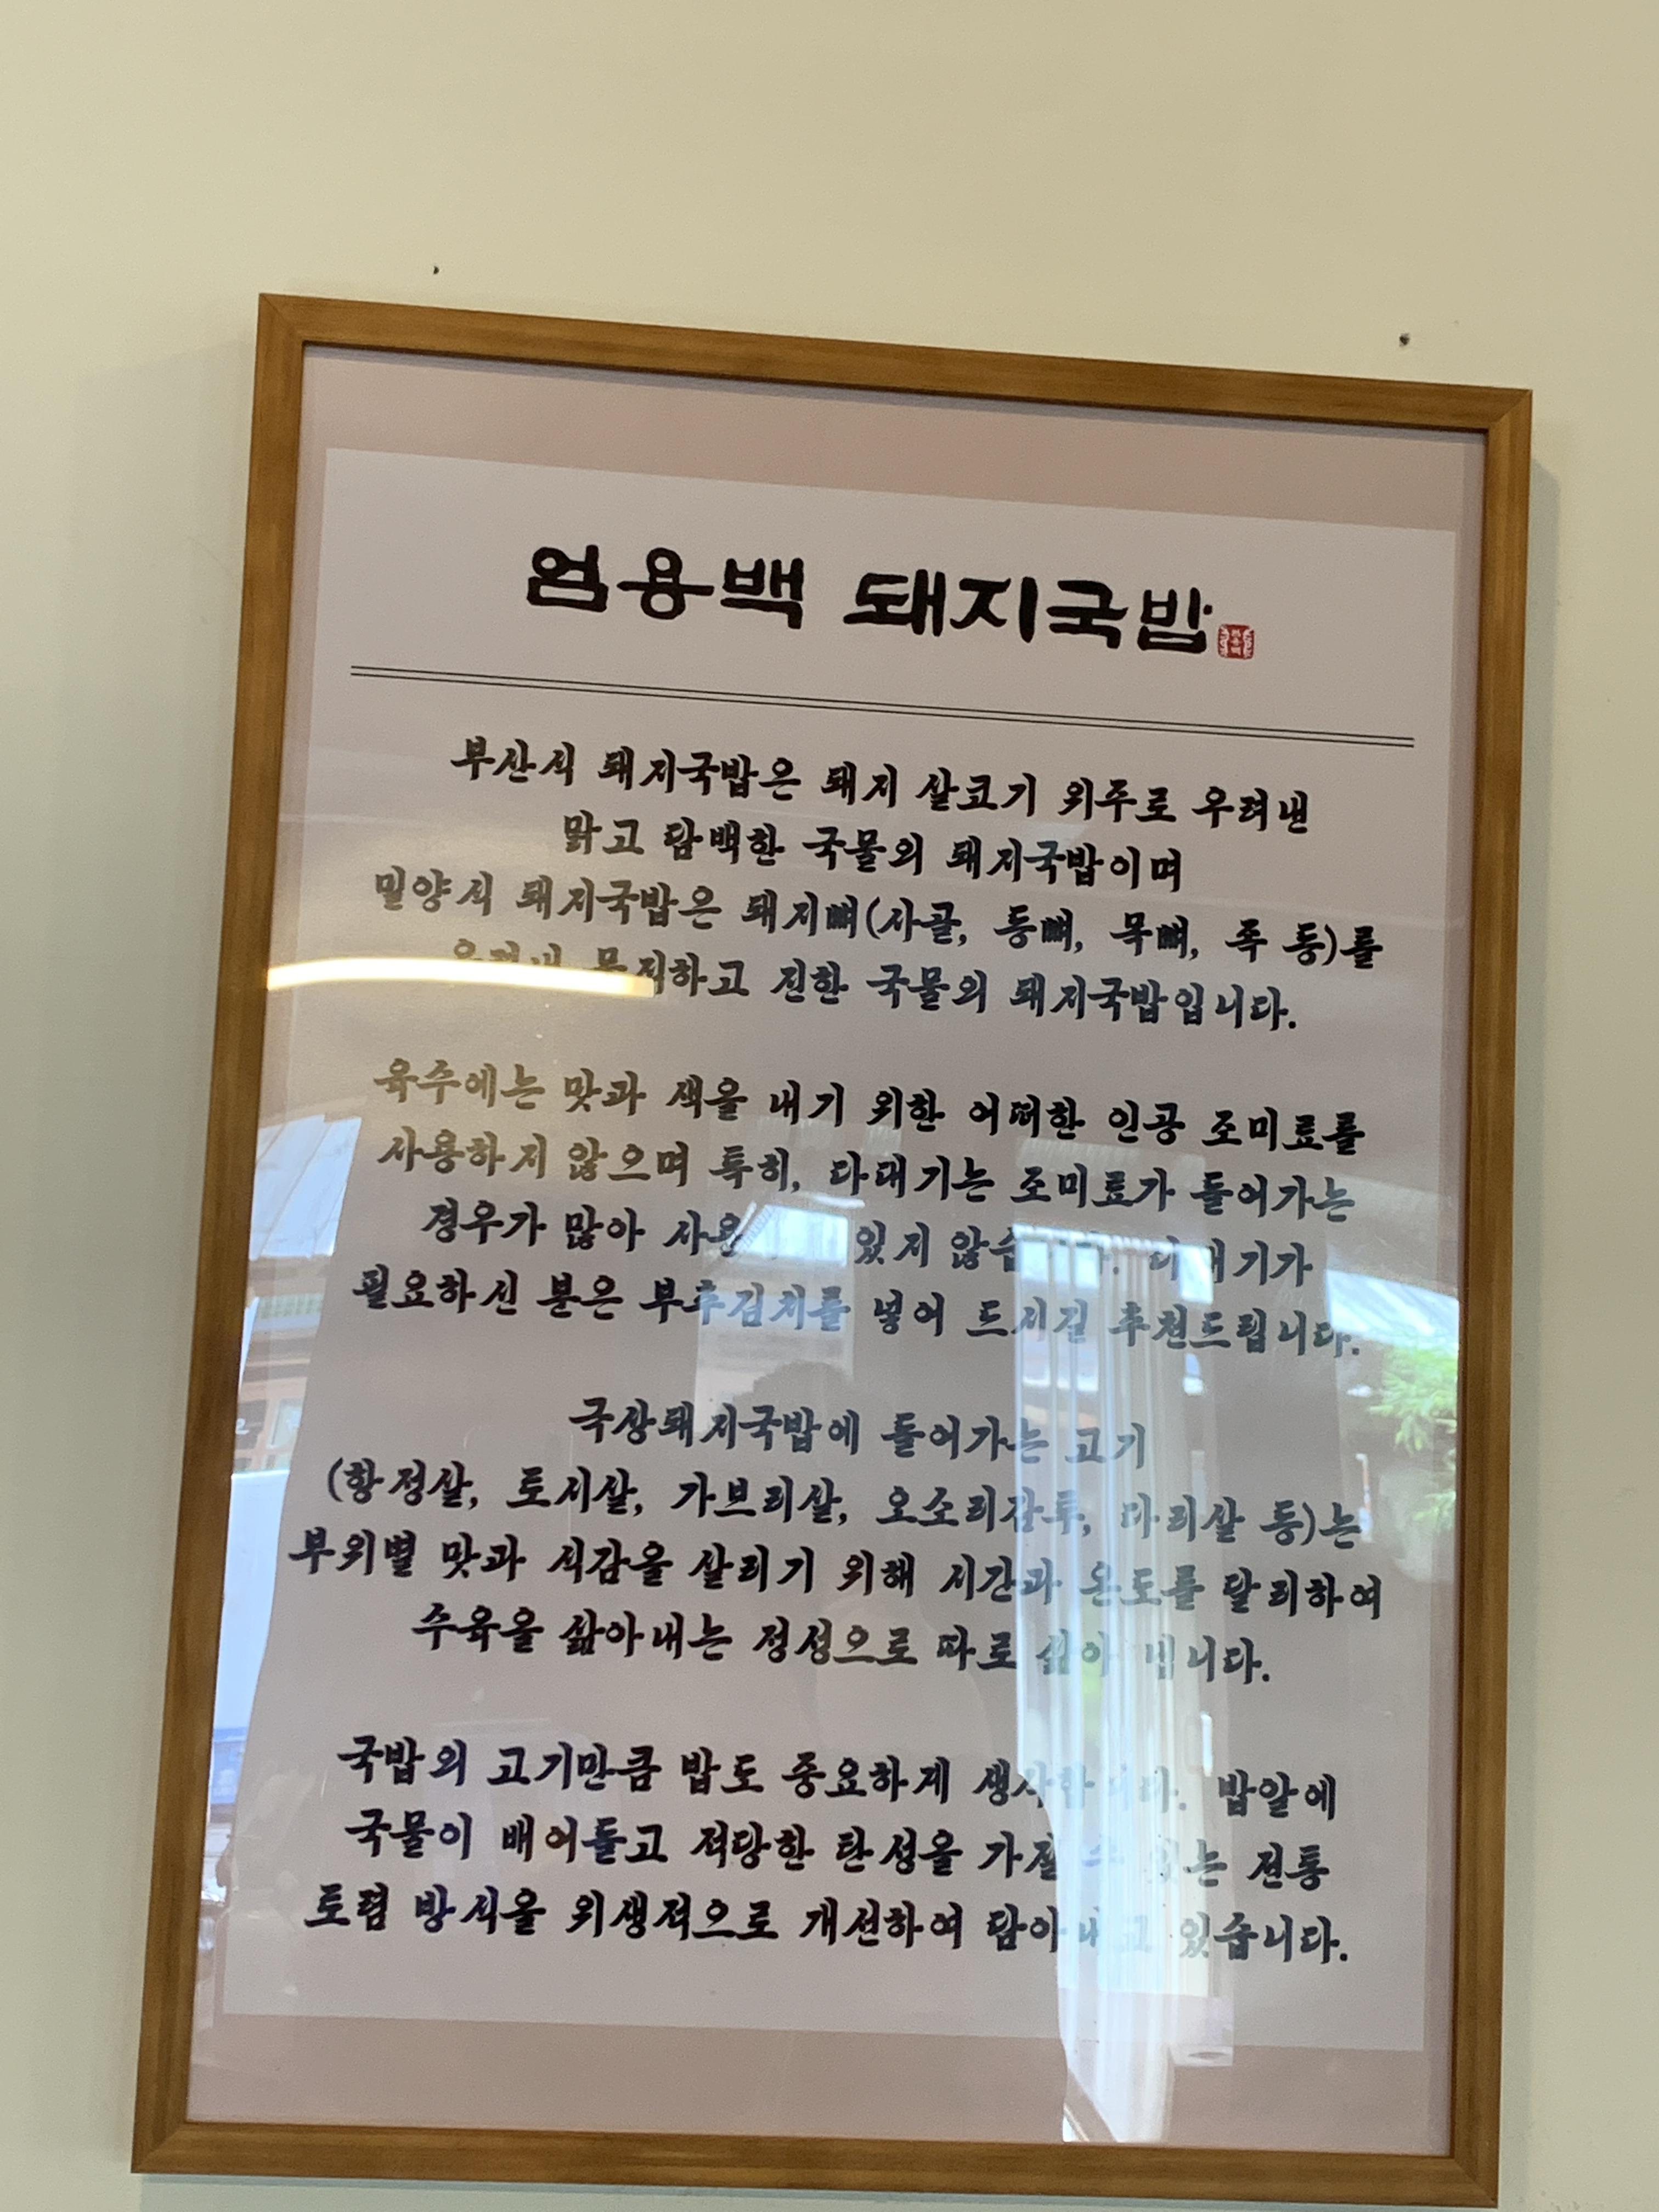 엄용백 돼지국밥
부산식 돼지국밥은 돼지 살코기 위주로 우려낸
맑고 담백한 국물의 돼지국밥이며
밀양식 돼지국밥은 돼지뼈(사골, 등뼈, 목뼈, 족 등)를
하고 진한 국물의 돼지국밥입니다.
육수에는 맛과 색을 내기 위한 어떠한 인공 조미료를
사용하지 않으며 특히, 다대기는 조미료가 들어가는
경우가 많아 있지 다대기가
필요하신 분은 부추김치를 넣어 드시길 추천드립니다.
극상돼지국밥에 들어가는 고기
(항정살, 토시살, 가브리살, 오소리감투, 다리살 등)는
부위별 맛과 식감을 살리기 위해 시간과 온도를 달리하여
수육을 삶아내는 정성으로 따로 삶아 냅니다.
국밥의 고기만큼 밥도 중요하게 생각합니다. 밥알에
국물이 배어들고 적당한 탄성을 가질 수 있는 전통
토렴 방식을 위생적으로 개선하여 담아내고 있습니다.